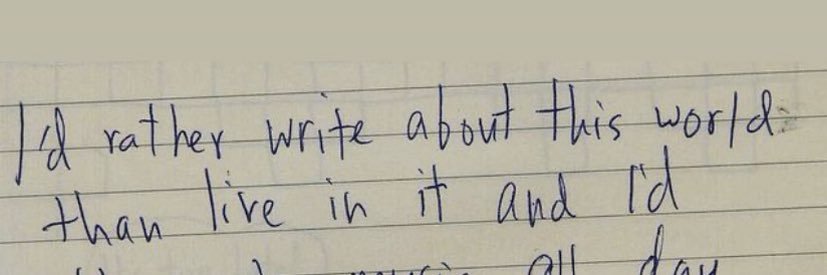 I'd rather write about this world
than live in it and I'd
all day